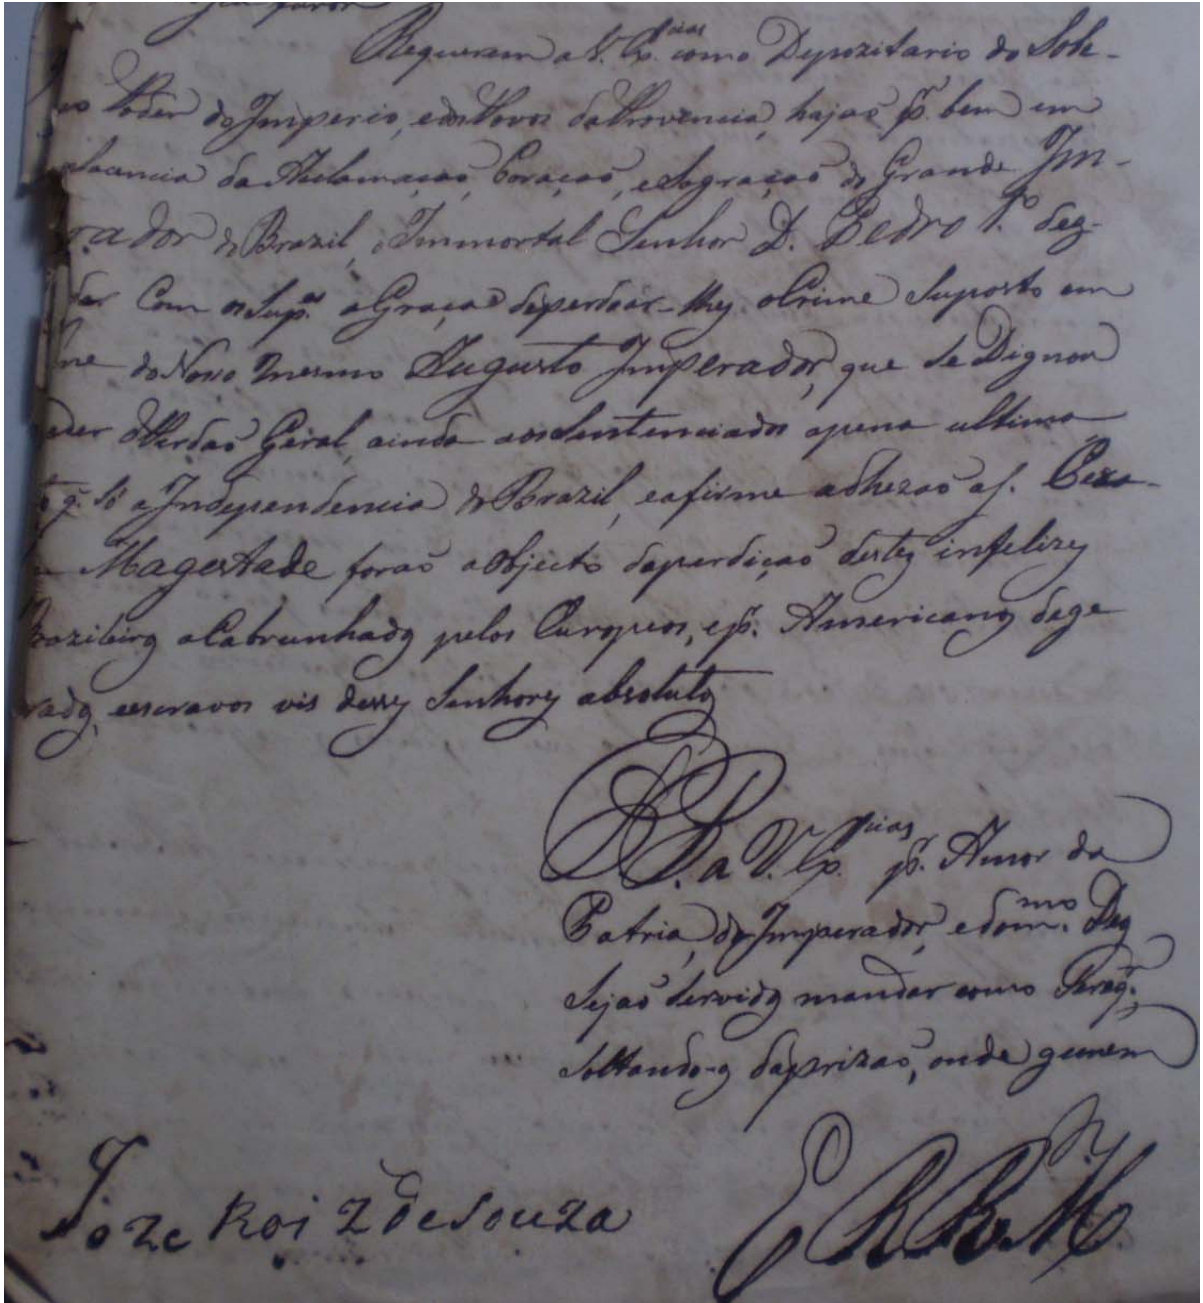 favor
Requerem a V. Ex.cias como Depozitario do Sobe-
no Poder do Imperio, e dos Povos da Provencia, hajaõ p.r bem em
da Aclamaçaõ, Coraçaõ, e Sagraçaõ do Grande Im-
rador do Brazil, o Immortal Senhor D. Pedro 1.º deg-
der Com os Sup.es a Graça de perdoar-lhes o Crime Suposto em
me do Novo mesmo Augusto Imperador, que Se Dignou
eder o Perdaõ Geral, ainda aos Sentenciados a pena ultima
q. Só a Independencia do Brazil, e a firme adhezaõ a S. Ceza-
Magestade foraõ o Objecto da perdiçaõ destes infelizes
Brazileiros aCabrunhados pelos Europeos, e p.r Americanos dege
rados, e escravos vis desses Senhores absolutos
P. a V. Ex.cias p.r Amor da
Patria, do Imperador, e do m.mo Deos
Sejaõ Servidos mandar como
Soltando-os da prizaõ, onde gemem
Joze Roiz de Souza
E R M